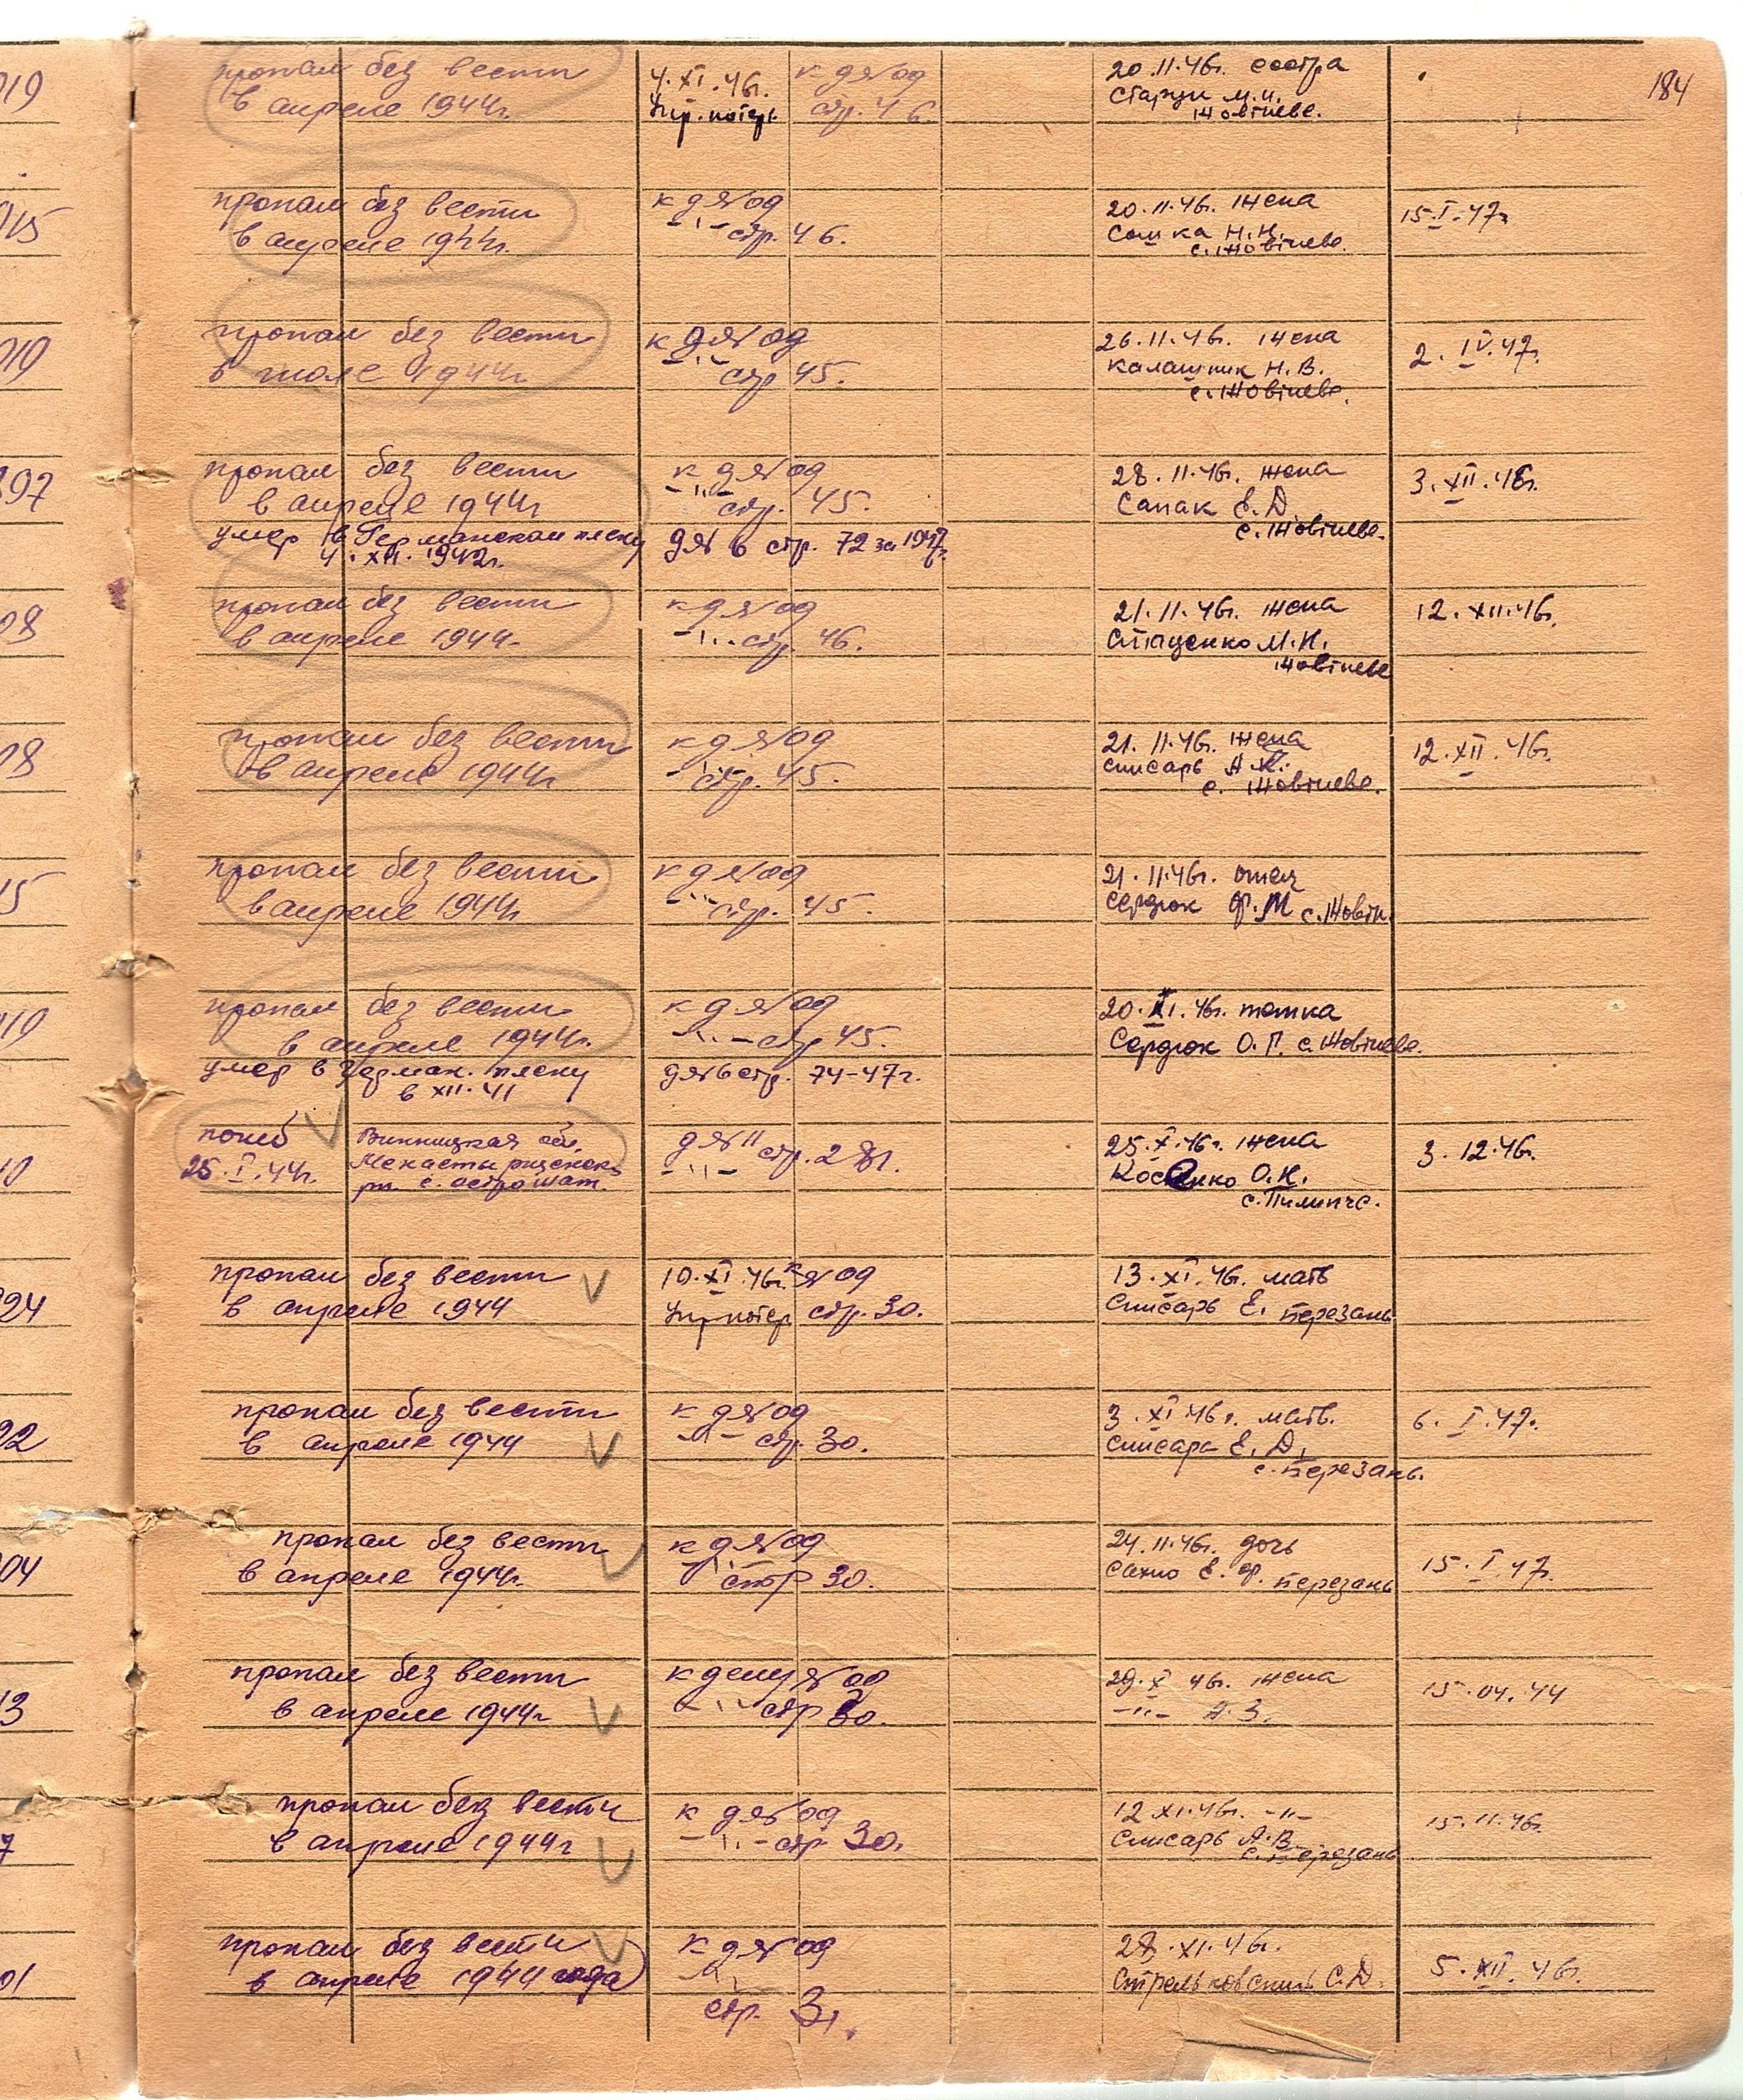 184
019
пропал без вести
в апреле 1944г.
4.XI.46г. к д № 09
Упр. потерь стр. 46.
20.11.46г. сестра
Жовтневе.
015
пропал без вести
в апреле 1944г.
к д № 09
-"- стр. 46.
20.11.46г. жена
Сомка Н.Н.
с. Жовтневе.
15.I.47г
019
пропал без вести
в июле 1944г
к д № 09
-"- стр 45.
26.11.46г. жена
Калашник Н.В.
с. Жовтневе.
2.IV.47г.
897
пропал без вести
в апреле 1944г
умер в Германском плену
4.XII.1942г.
к д № 09
-"- стр. 45.
д № 6 стр. 72 за 1947г.
28.11.46г. жена
Сапак Е.Д
с. Жовтневе.
3.XII.46г.
08
пропал без вести
в апреле 1944г.
к д № 09
-"- стр. 46.
21.11.46г. жена
Стаценко М.И.
Жовтневе
12.XII.46г.
08
пропал без вести
в апреле 1944г
к д № 09
-"- стр. 45.
21.11.46г. жена
Слисарь
с. Жовтневе.
12.XII.46г.
15
пропал без вести
в апреле 1944г
к д № 09
-"- стр. 45.
21.11.46г. отец
Сердюк Ф.М с. Жовтн.
019
пропал без вести
в апреле 1944г.
умер в Герман. плену
в XII.41
к д № 09
-"- стр 45.
д № 6 стр. 74-47г.
20.XI.46г. тетка
Сердюк О.Г. с. Жовтневе.
10
погиб
25.I.44г.
Винницкая обл.
с.
д № 11 стр. 281.
-"-
25.X.46г. жена
Косенко О.И.
с. Пилипче.
3.12.46г.
24
пропал без вести
в апреле 1944
10.XI.46г. к № 09
Упр потер стр. 30.
13.XI.46г. мать
Слисарь Е. Перезань
22
пропал без вести
в апреле 1944
к д № 09
-"- стр. 30.
3.XI.46г. мать.
Слисарь Е.Д.
с. Перезань.
6.I.47г.
04
пропал без вести
в апреле 1944г.
к д № 09
-"- стр 30.
24.11.46г. дочь
Сахно Е.Ф. Перезань
15.I.47г.
13
пропал без вести
в апреле 1944г
к делу № 09
-"- стр 30.
29.X 46г. жена
-"- А.З.
15.04.44
7
пропал без вести
в апреле 1944г
к д № 09
-"- стр 30.
12.XI.46г. -"-
Слисарь А.В.
с. Перезань
15.11.46г.
01
пропал без вести
в апреле 1944 года
к д № 09
-"-
стр. 31
28.XI.46г.
С.Д.
5.XII.46г.